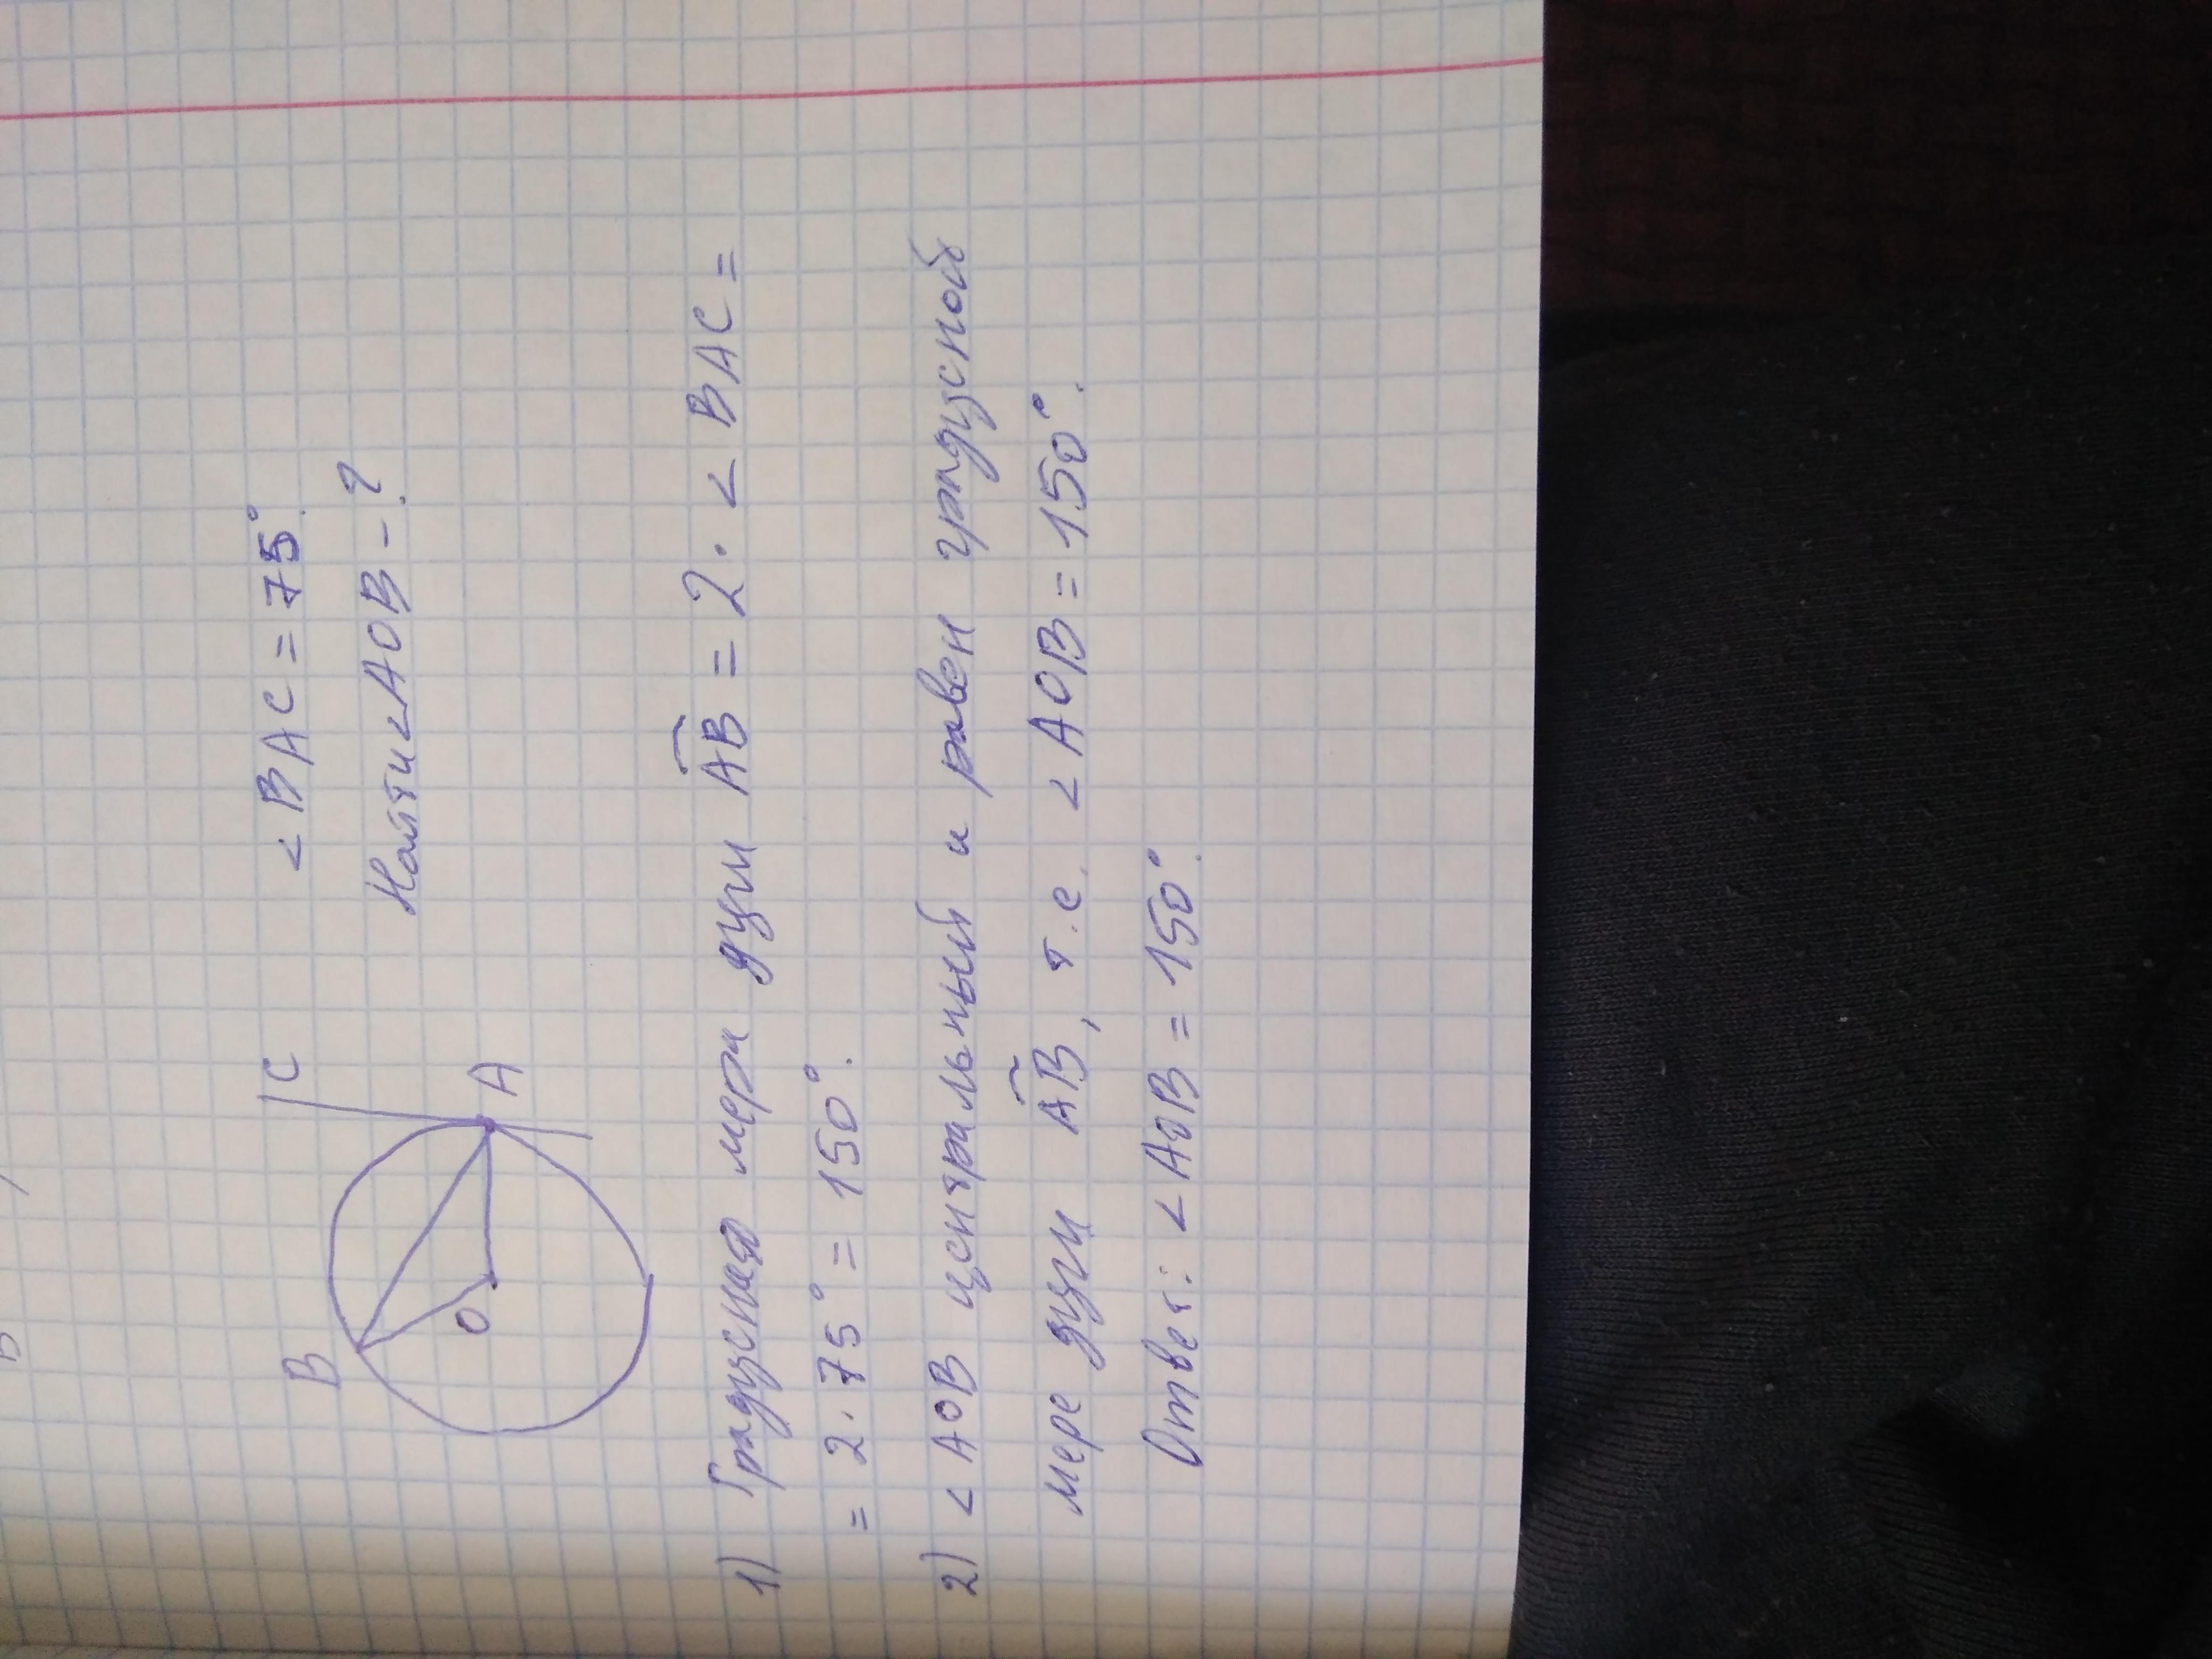 B
C
A
O
< BAC = 75°.
Найти < AOB - ?
1) Градусная мера дуги AB = 2 · < BAC =
= 2 · 75° = 150°.
2) < AOB центральный и равен градусной
мере дуги AB, т.е. < AOB = 150°.
Ответ: < AOB = 150°.